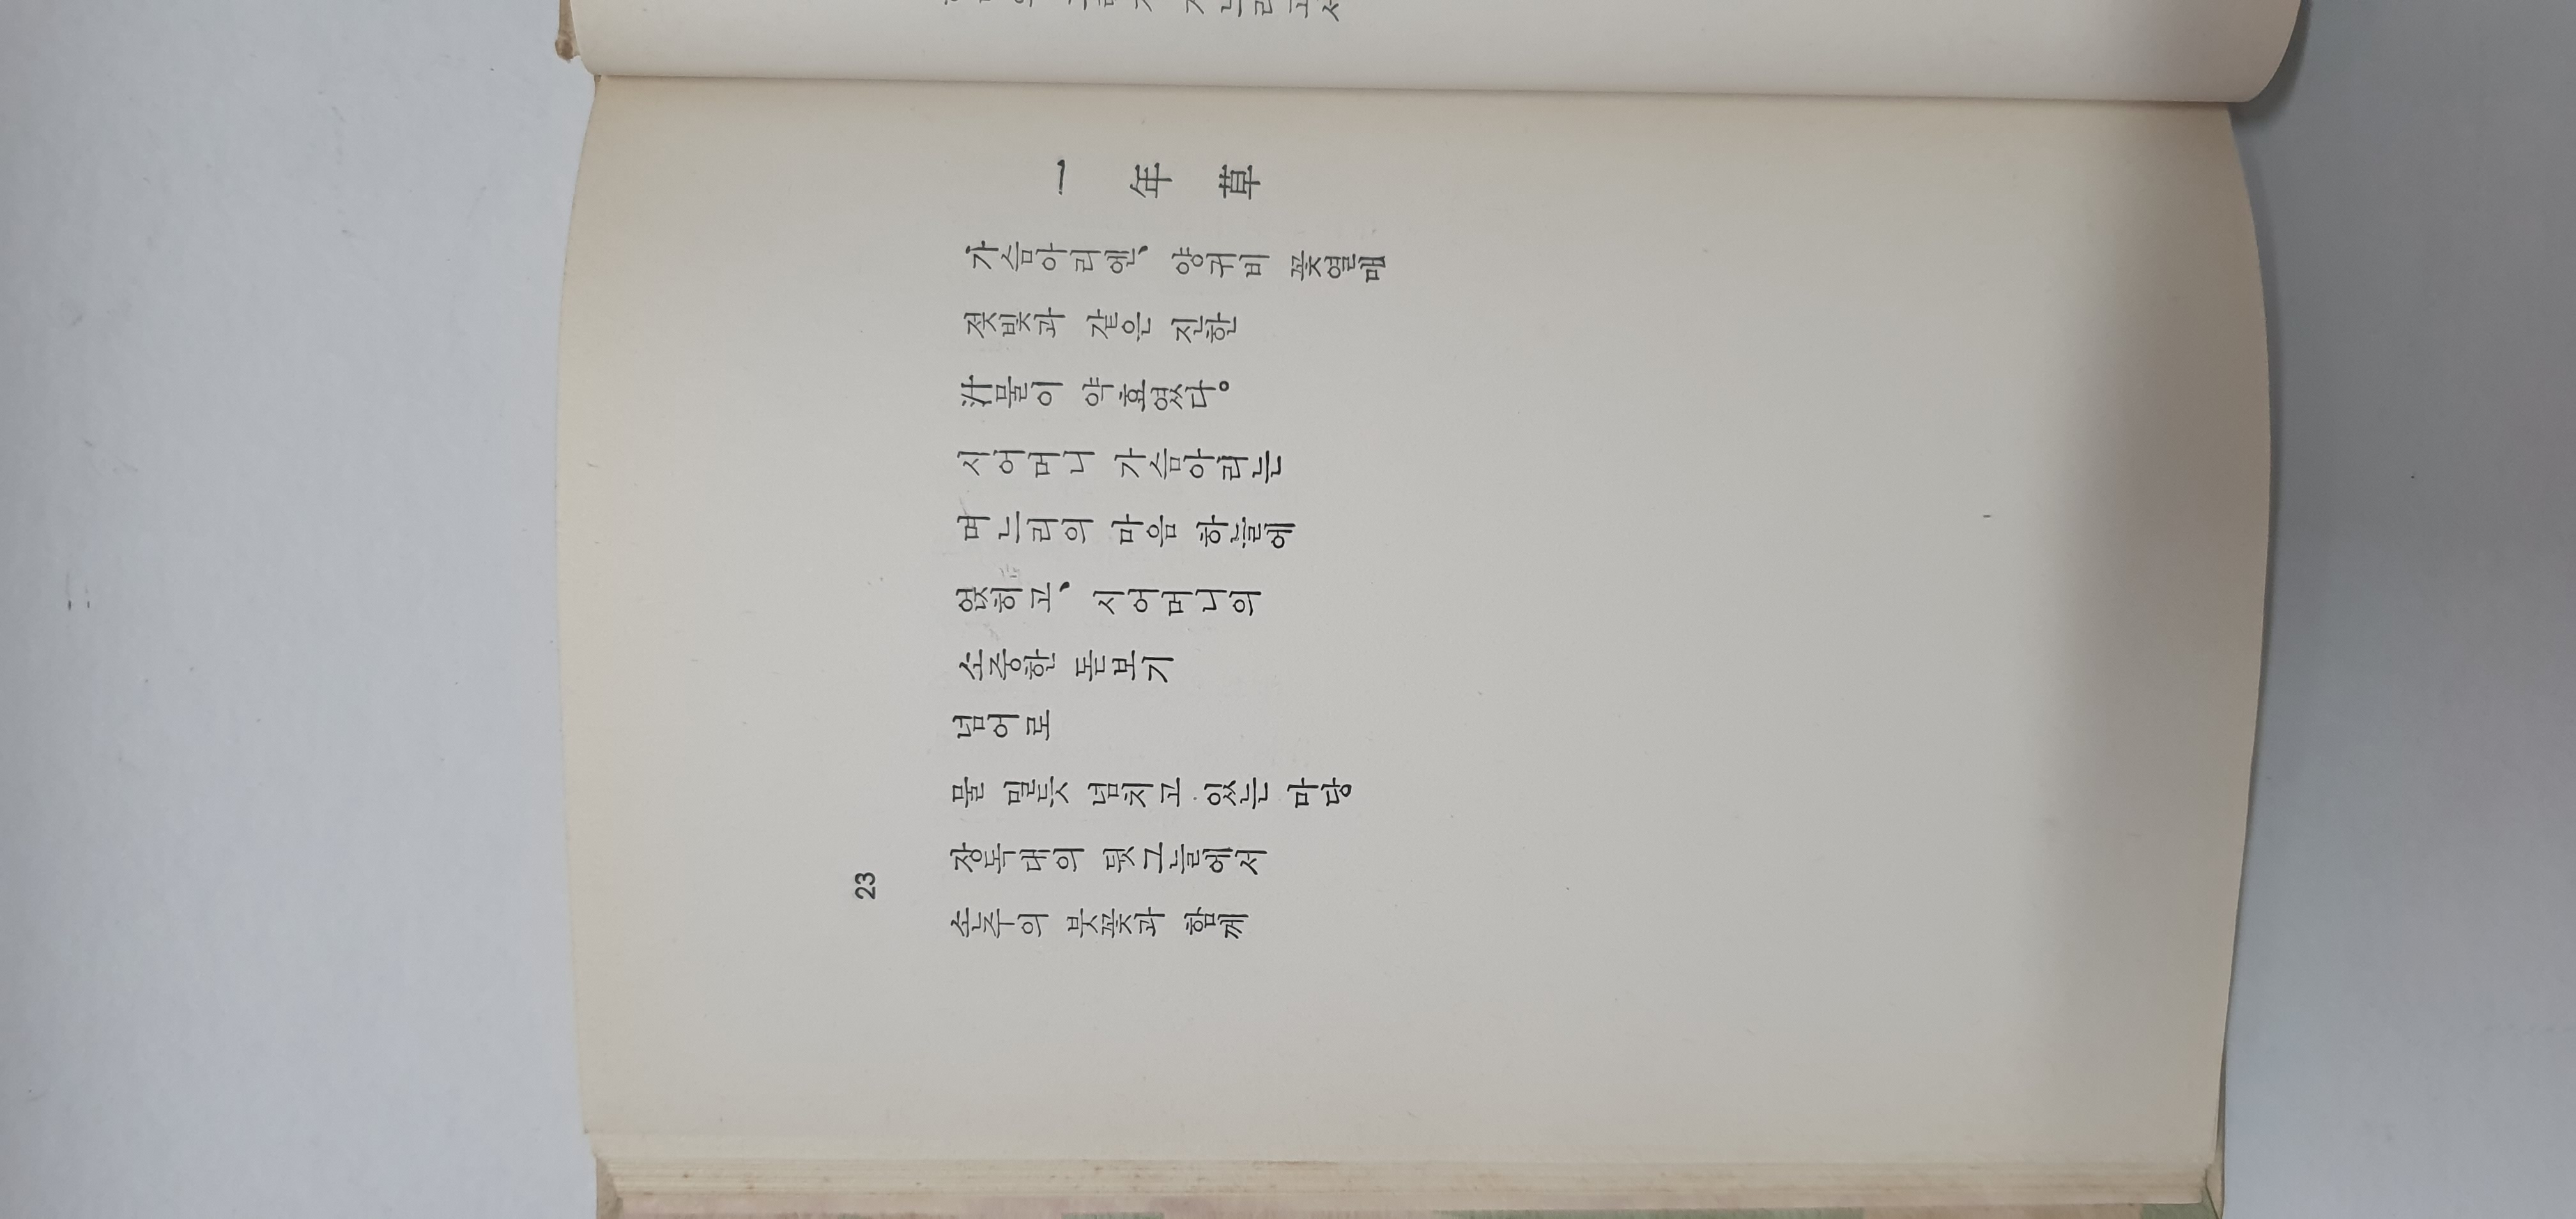 一年草
가슴아리엔、양귀비 꽃열매
젖빛과 같은 진한
汁물이 약효였다。
시어머니 가슴아리는
며느리의 마음 하늘에
얹히고、시어머니의
소중한 돋보기
넘어로
물 밀듯 넘치고 있는 마당
장독대의 뒷그늘에서
손주의 붓꽃과 함께
23